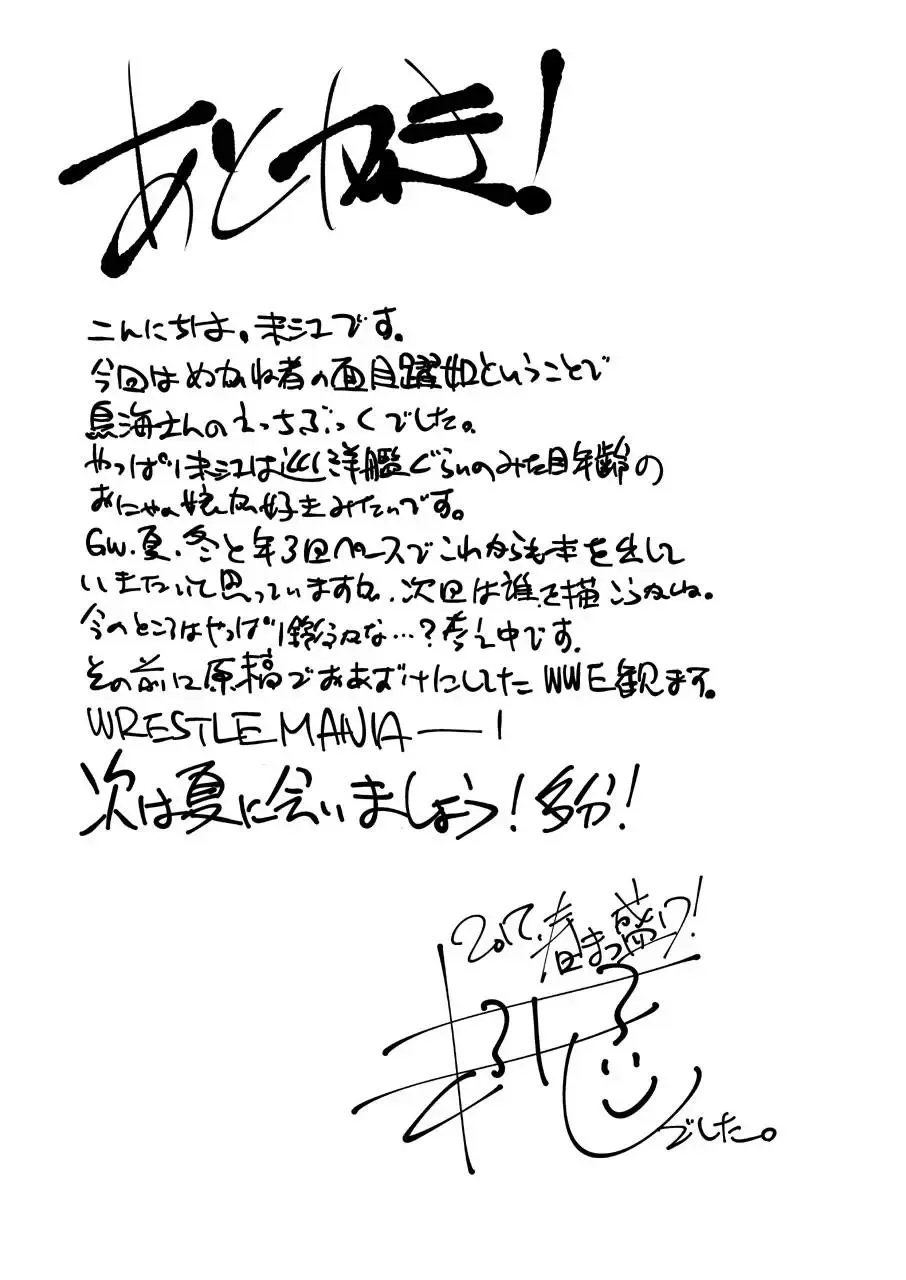 あとがき!
こんにちは。未江です。
今回はめがね者の面目躍如ということで
鳥海さんのえっちぶっくでした。
やっぱり未江は巡洋艦ぐらいのみた目年齢の
おにゃの娘が好きみたいです。
GW、夏、冬と年3回ペースでこれからも本を出して
いきたいって思っていますが、次回は誰を描こうかしら。
今のところはやっぱり鈴谷な…?考え中です。
その前に原稿でおあずけにしてたWWE観ます。
WRESTLEMANIA――!
次は夏に会いましょう!多分!
2017.春まっ盛り!
でした。